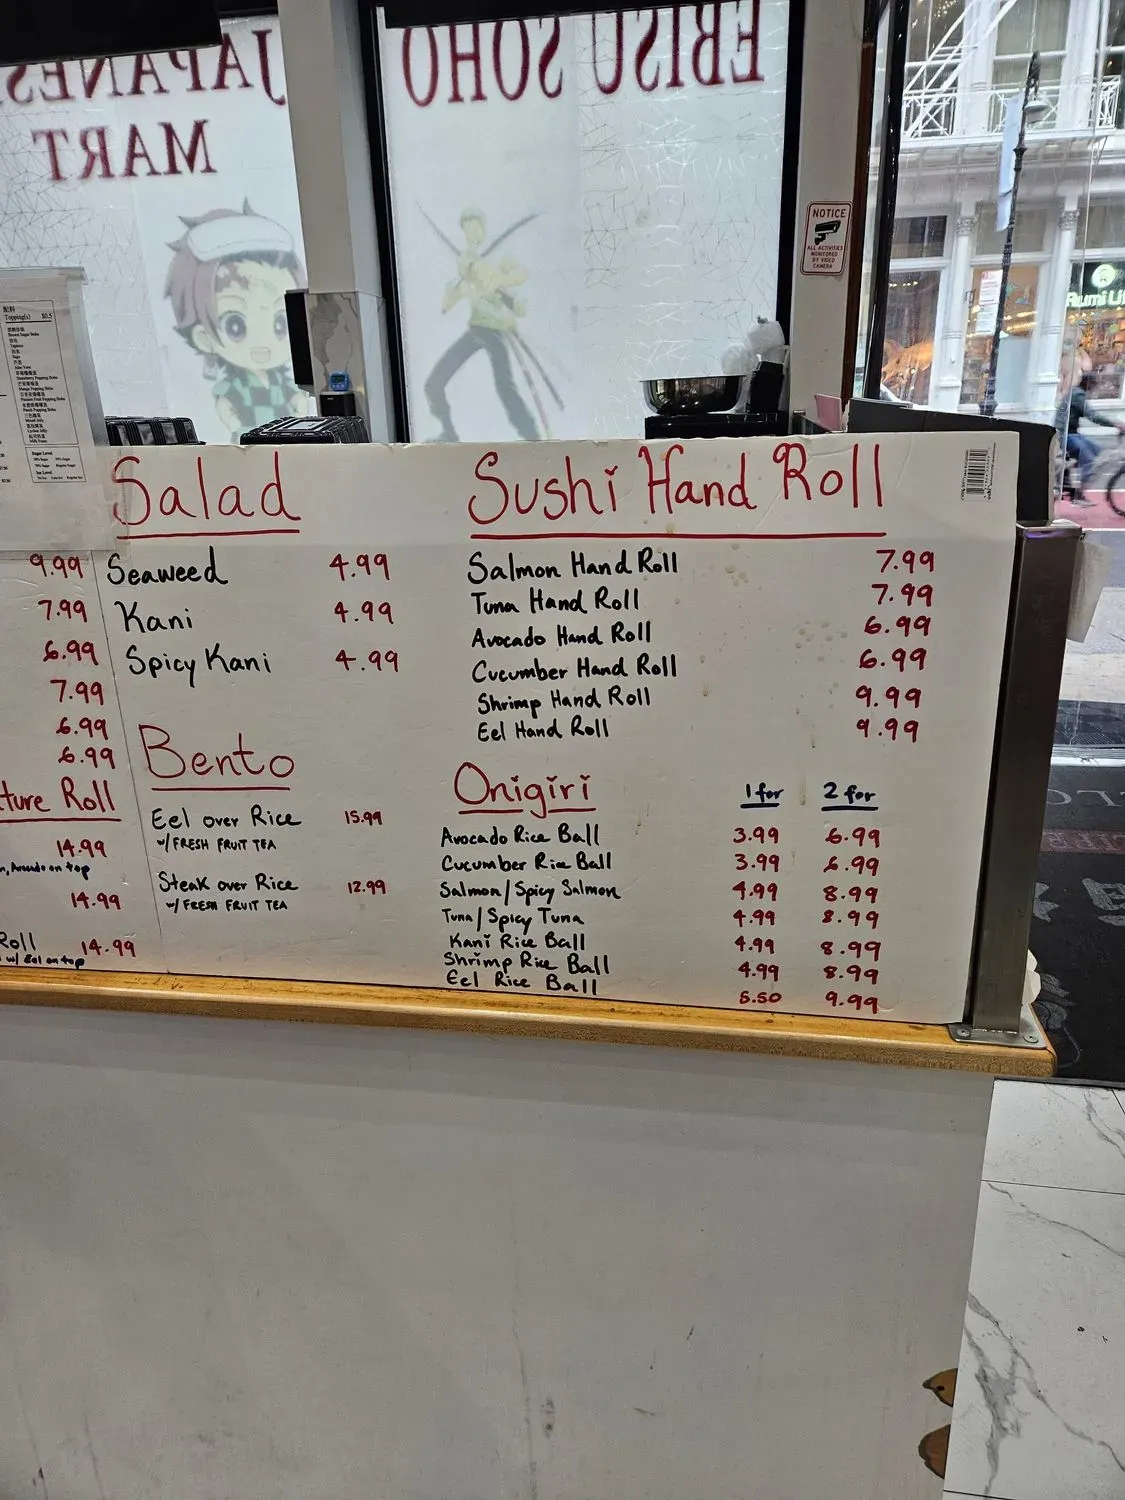 JAPANES
MART
EBISU SOHO
NOTICE
ALL ACTIVITIES
MONITORED
BY VIDEO
CAMERA
Rumi
配料
Topping(s) $0.5
Brown Sugar Boba
Tapioca
Sago
Aloe Vera
Strawberry Popping Boba
Mango Popping Boba
Passion Fruit Popping Boba
Peach Popping Boba
Mixed Jelly
Lychee Jelly
Milk Foam
Sugar Level
Ice Level
9.99
7.99
6.99
7.99
6.99
6.99
ture Roll
14.99
Avocado on top
14.99
Roll 14.99
w/ Eel on top
Salad
Seaweed 4.99
Kani 4.99
Spicy Kani 4.99
Bento
Eel over Rice 15.99
w/ FRESH FRUIT TEA
Steak over Rice 12.99
w/ FRESH FRUIT TEA
Sushi Hand Roll
Salmon Hand Roll 7.99
Tuna Hand Roll 7.99
Avocado Hand Roll 6.99
Cucumber Hand Roll 6.99
Shrimp Hand Roll 9.99
Eel Hand Roll 9.99
Onigiri 1 for 2 for
Avocado Rice Ball 3.99 6.99
Cucumber Rice Ball 3.99 6.99
Salmon/Spicy Salmon 4.99 8.99
Tuna/Spicy Tuna 4.99 8.99
Kani Rice Ball 4.99 8.99
Shrimp Rice Ball 4.99 8.99
Eel Rice Ball 5.50 9.99